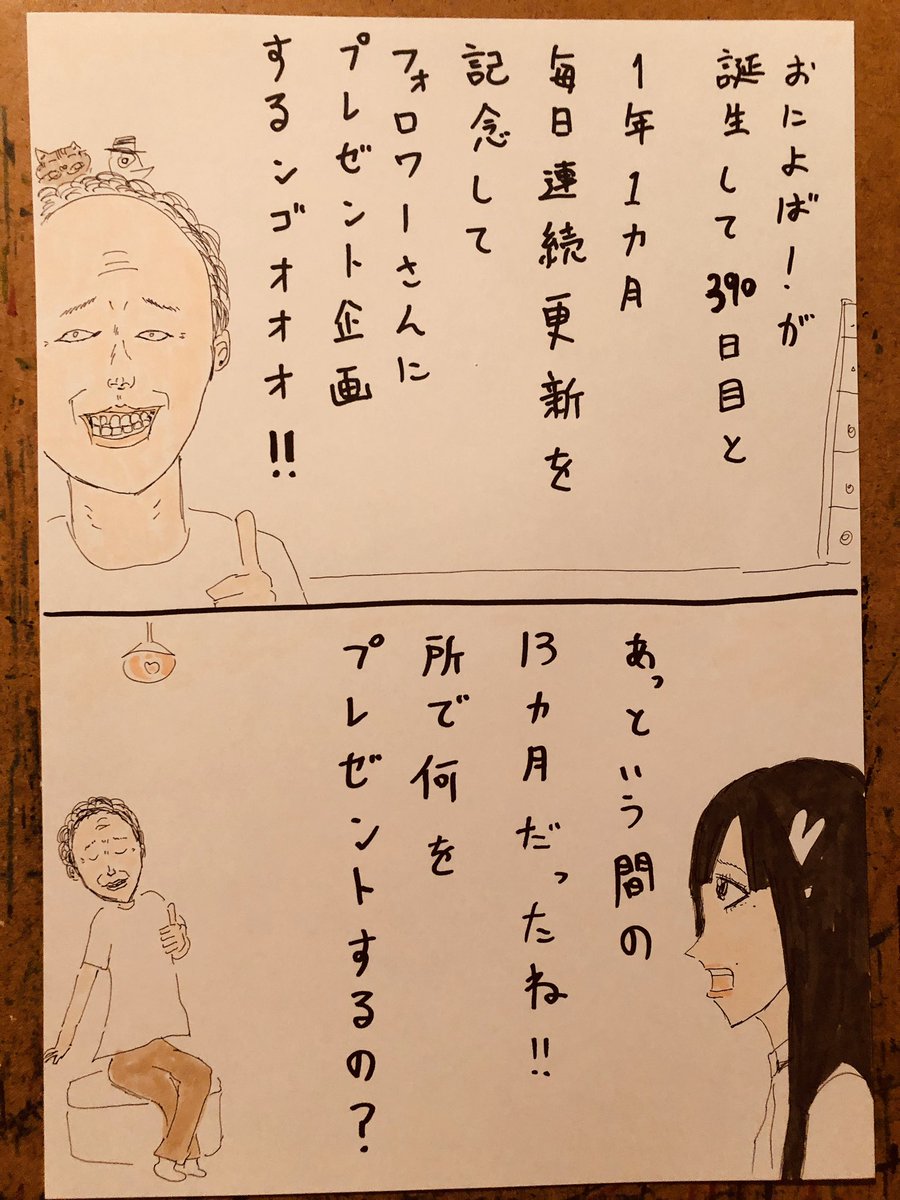 おによば！が
誕生して390日目と
1年1カ月
毎日連続更新を
記念して
フォロワーさんに
プレゼント企画
するンゴオオオ!!
あっという間の
13カ月だったね!!
所で何を
プレゼントするの？